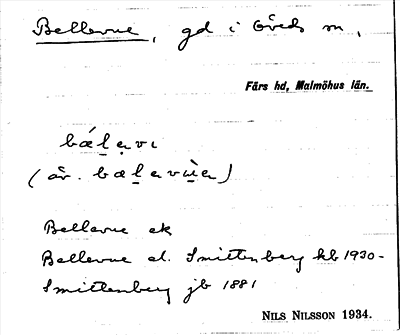 Bellevue, gd i Öveds sn,
Färs hd, Malmöhus län.
bǽl̲ạvı
(äv. bæl̲avù̲ạ)
Bellevue ek
Bellevue el. Smittenberg kb 1930-
Smittenberg jb 1881
NILS NILSSON 1934.